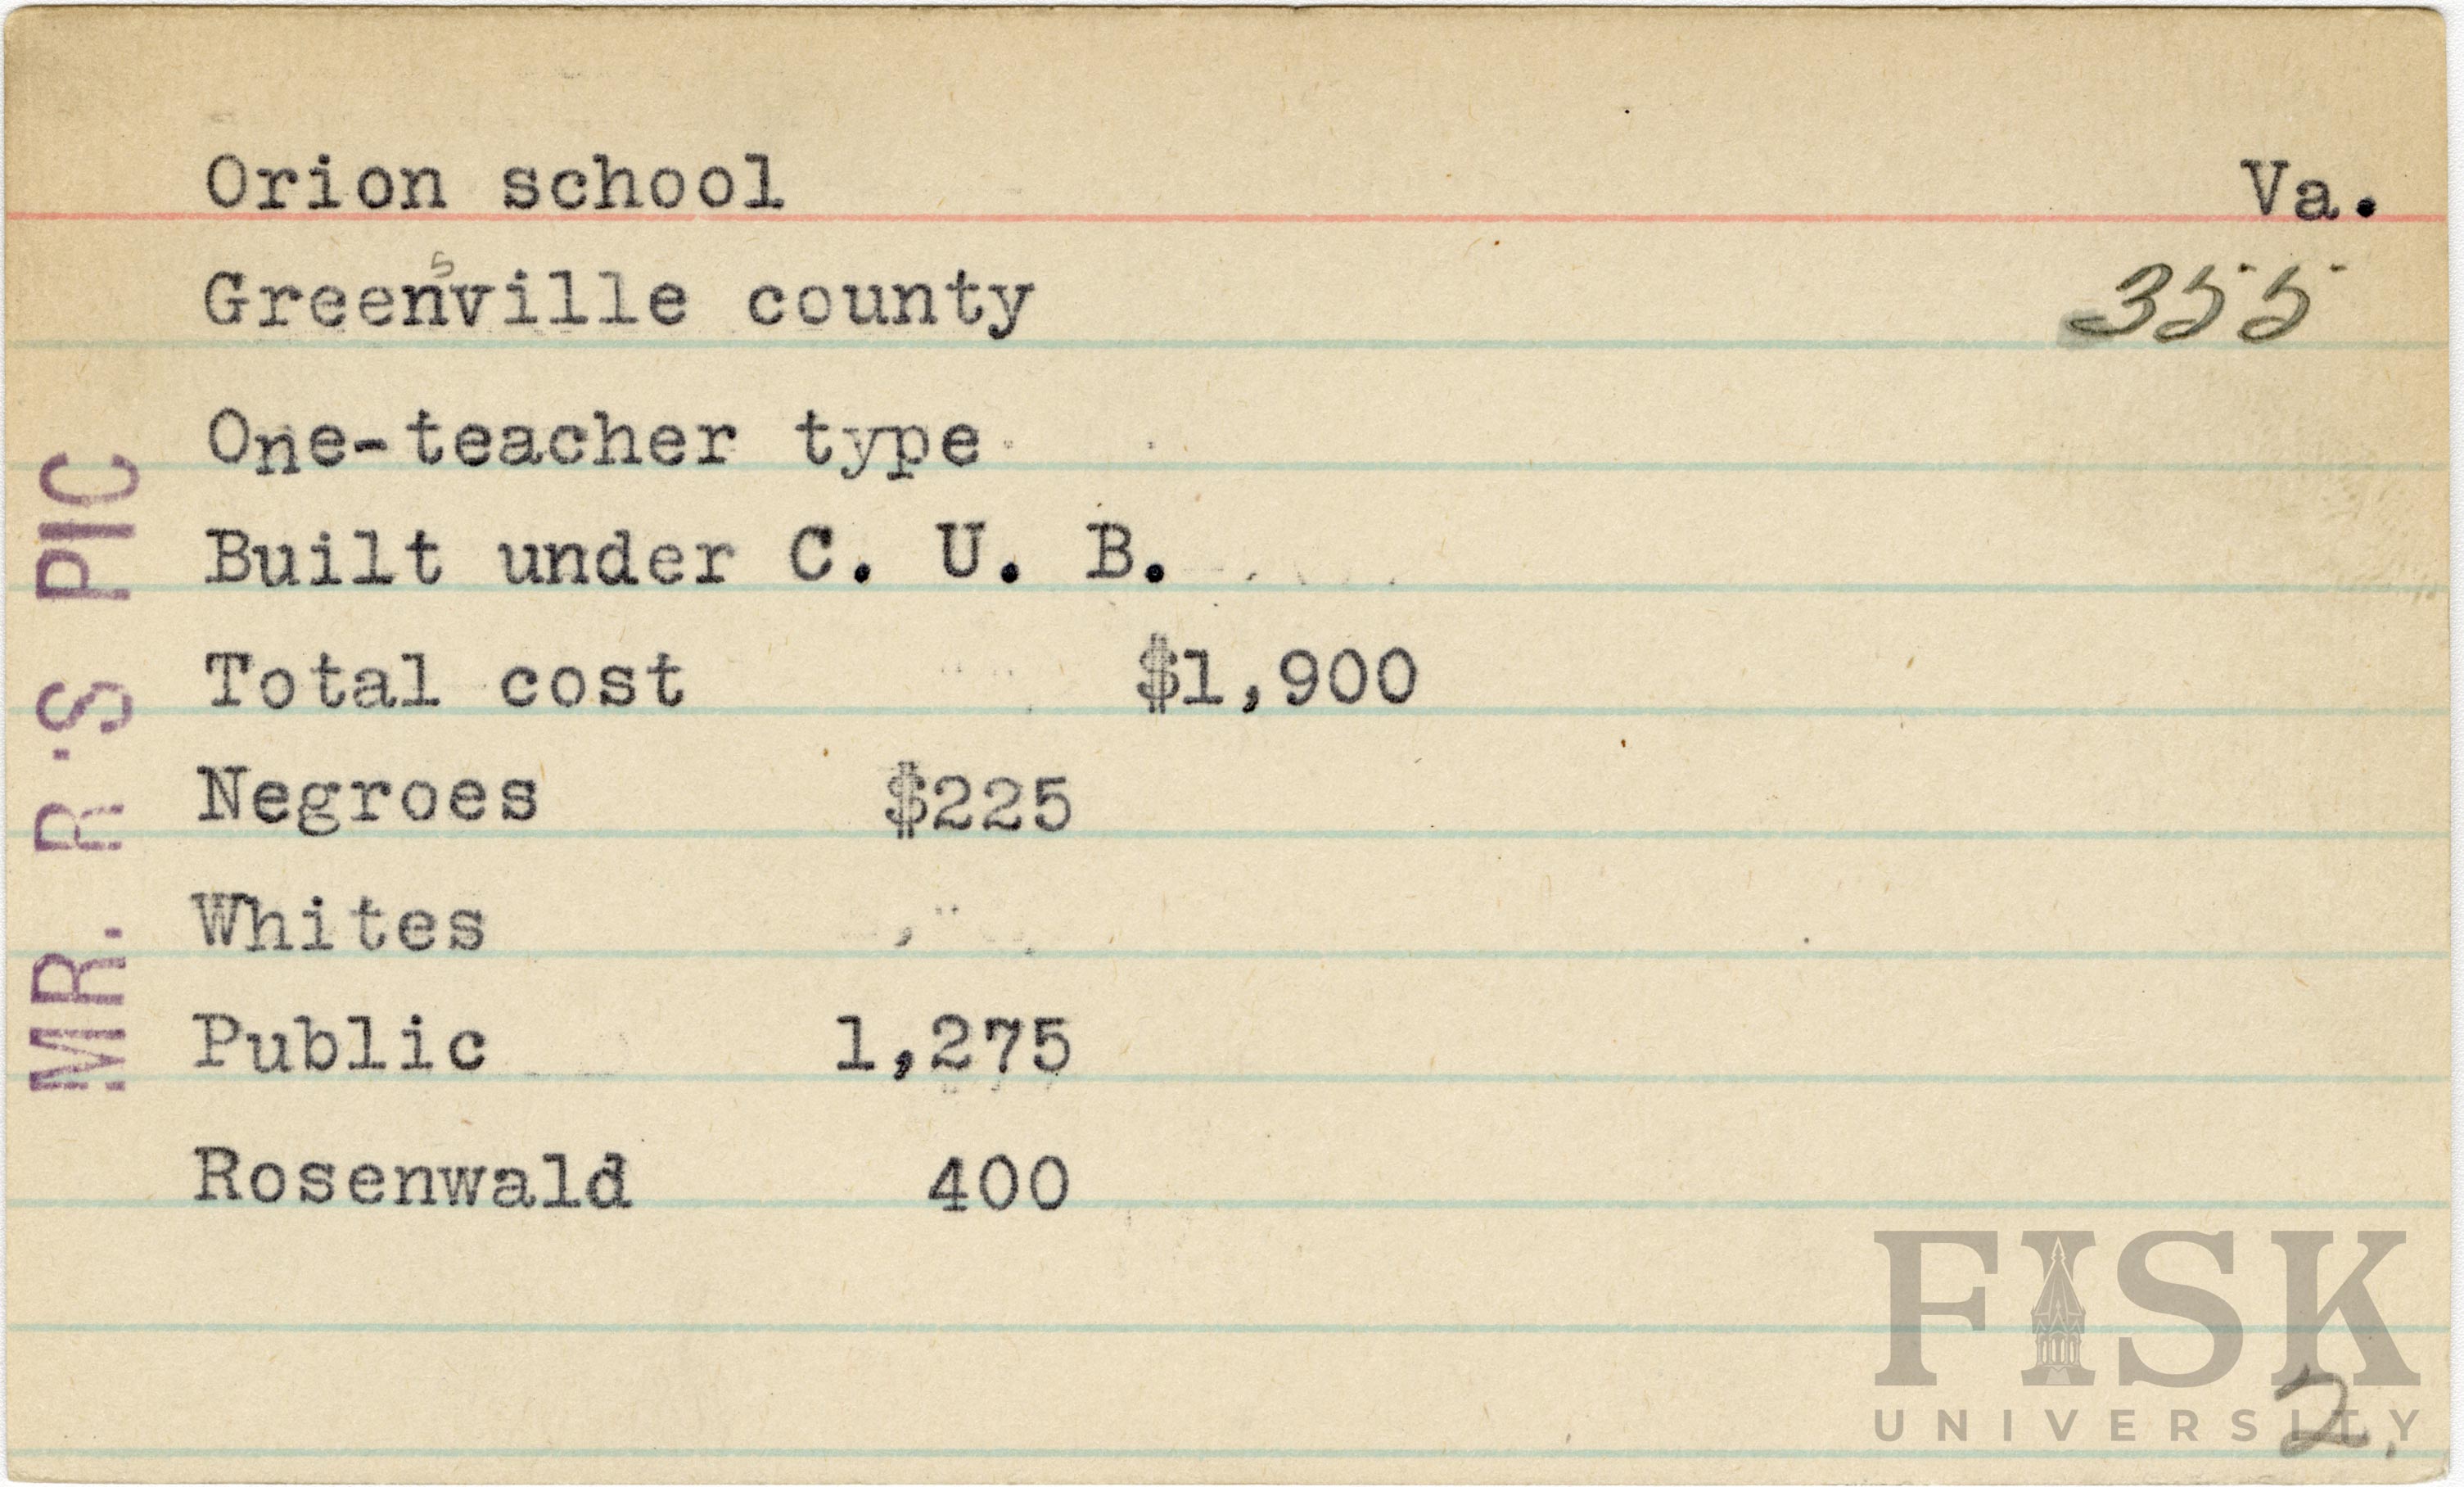 Orion school Va.
Greensville county 355
One-teacher type
Built under C. U. B.
Total cost $1,900
Negroes $225
Whites
Public 1,275
Rosenwald 400
MR. R·S PIC
FISK
UNIVERSITY
2.